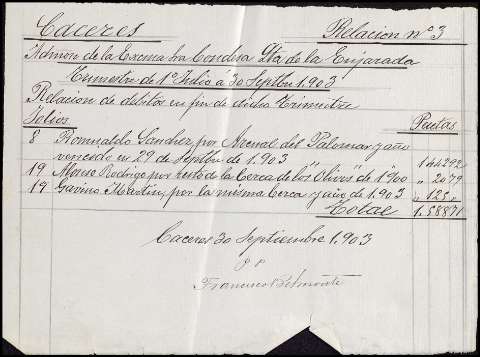 Caceres Relacion nº 3
Admon de la Excma Sra Condesa Vda de la Enjarada
Trimestre de 1º Julio a 30 Septbre 1.903
Relacion de debitos en fin de dicho Trimestre
Folios Pesetas
8 Romualdo Sanchez por Arenal del Palomar y año
vencido en 29 de Septbre de 1.903 1.44292
19 Rodrigo por resto de la Cerca de los "Olivos" de 1900 " 2079
19 Gavino Martin, por la misma Cerca y año de 1.903 " 125 "
Total 1.58871
Caceres 30 Septiembre 1.903
P P
Francisco Belmonte